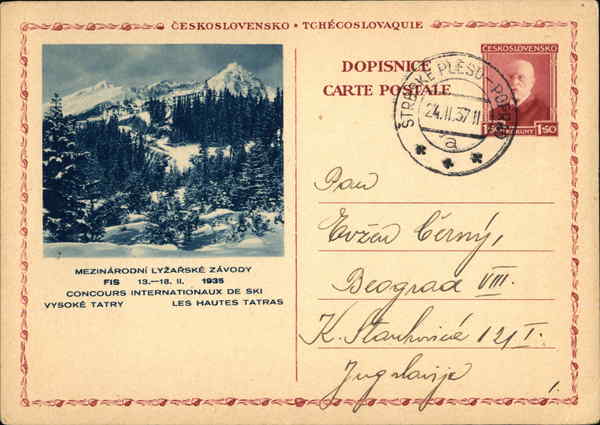 ČESKOSLOVENSKO • TCHÉCOSLOVAQUIE
DOPISNICE
CARTE POSTALE
ČESKOSLOVENSKO
1·50 KORUNY 1·50
ŠTRBSKÉ PLESO
24.II.37 11
a
MEZINÁRODNÍ LYŽAŘSKÉ ZÁVODY
FIS 13.—18. II. 1935
CONCOURS INTERNATIONAUX DE SKI
VYSOKÉ TATRY LES HAUTES TATRAS
Pan
Evžen Černý,
Beograd VIII.
K. Stankovića 12/I.
Jugslavije